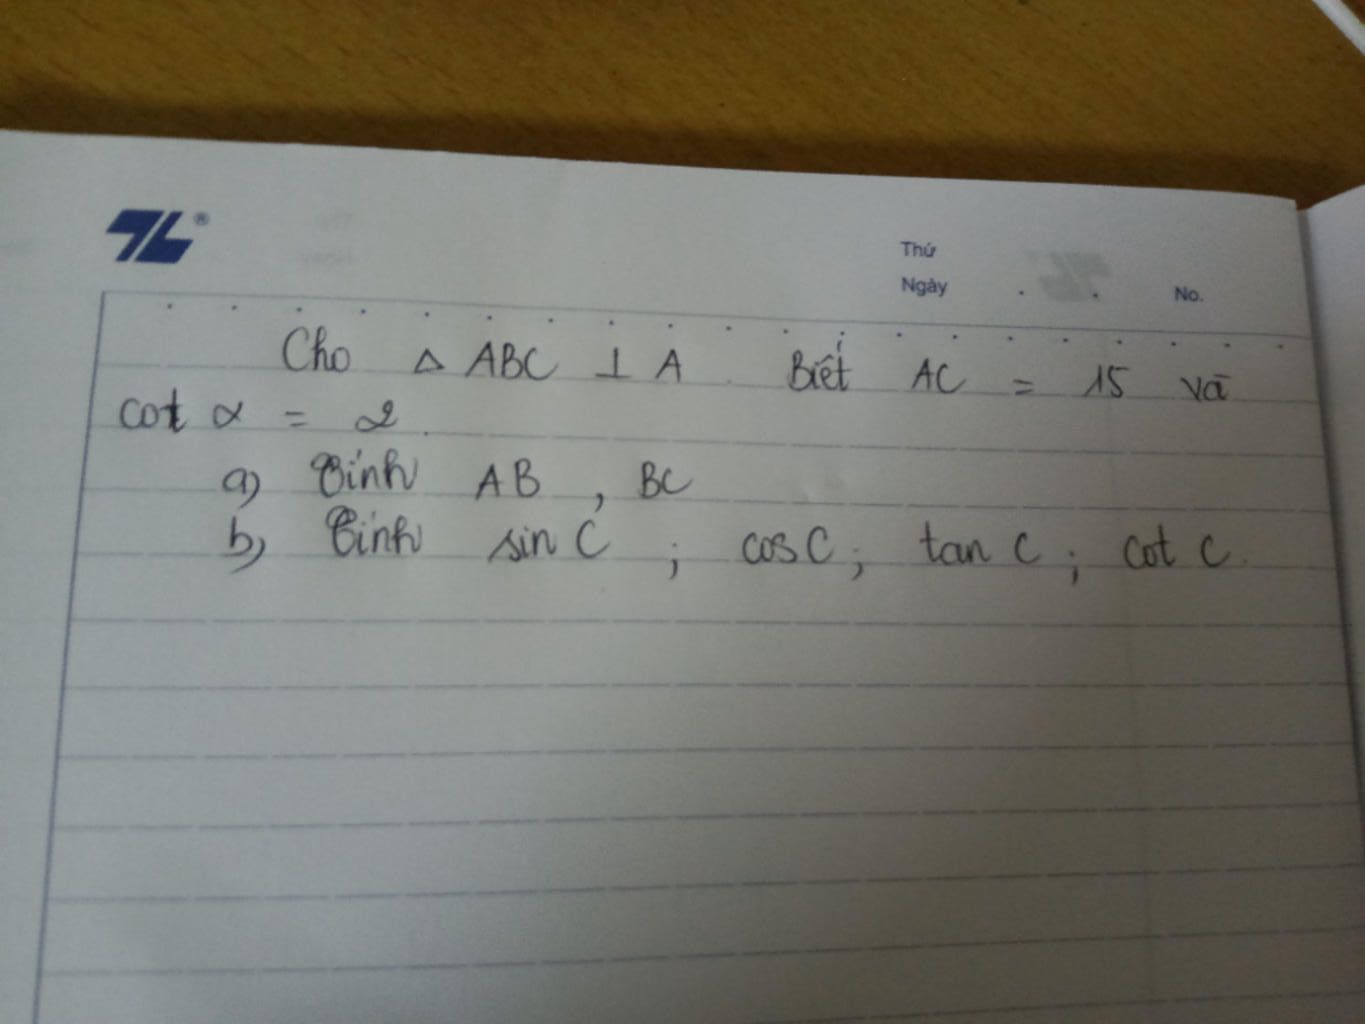 Thứ
Ngày . . No.
Cho Δ ABC ⊥ A. Biết AC = 15 và
cot α = 2.
a) Tính AB, BC
b) Tính sin C; cos C; tan C; cot C.